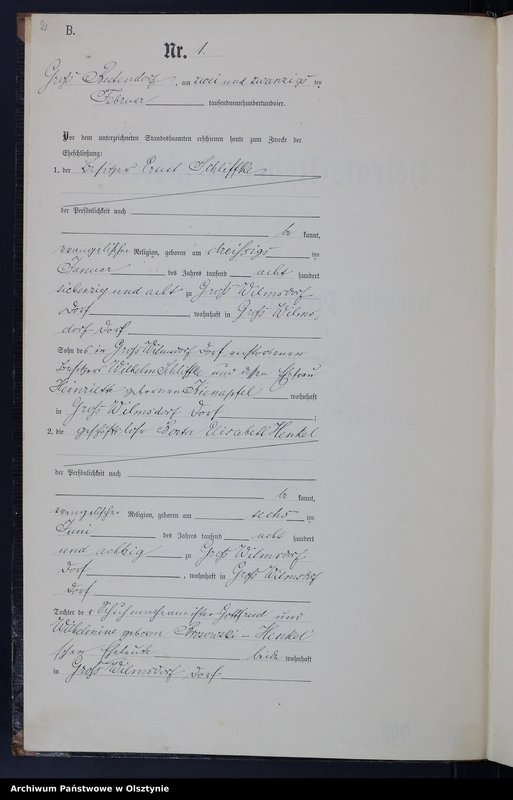 B.
Nr. 1.
Groß, am zwei und zwanzigsten
Februar tausendneunhundertundvier.
Vor dem unterzeichneten Standesbeamten erschienen heute zum Zwecke der
Eheschließung:
1. der Besitzer Ernst Schliffke
der Persönlichkeit nach
be kannt,
evangelischer Religion, geboren am dreißigsten
Januar des Jahres tausend acht hundert
siebenzig und acht zu Groß Wilmsdorf
Dorf, wohnhaft in Groß Wilms-
dorf Dorf
Sohn des in Groß Wilmsdorf Dorf verstorbenen
Besitzers Wilhelm Schliffke und dessen Ehefrau
Henriette geborenen Kienapfel wohnhaft
in Groß Wilmsdorf Dorf;
2. die geschäftslose Berta Elisabeth Henkel
der Persönlichkeit nach
be kannt,
evangelischer Religion, geboren am sechsten
Juni des Jahres tausend acht hundert
und achtzig zu Groß Wilmsdorf
Dorf, wohnhaft in Groß Wilmsdorf
Dorf
Tochter der Schuhmachermeister Gottfried und
Wilhelmine geborne Brosowski - Henkel
schen Eheleute beide wohnhaft
in Groß Wilmsdorf Dorf
Archiwum Państwowe w Olsztynie